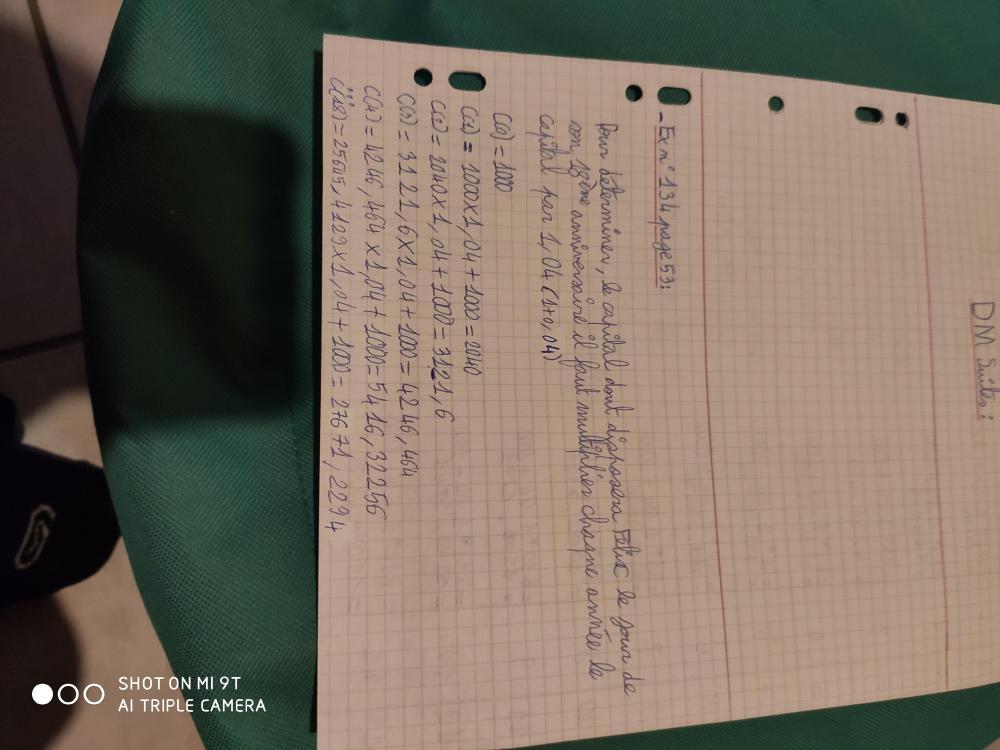 DM Suites :
- Ex n° 134 page 59 :
Pour déterminer, le capital dont disposera Félix le jour de
son 18ème anniversaire il faut multiplier chaque année le
capital par 1,04 (1+0,04)
C(0) = 1000
C(1) = 1000 x 1,04 + 1000 = 2040
C(2) = 2040 x 1,04 + 1000 = 3121,6
C(3) = 3121,6 x 1,04 + 1000 = 4246,464
C(4) = 4246,464 x 1,04 + 1000 = 5416,32256
...
C(18) = 25645,4129 x 1,04 + 1000 = 27671,2294
SHOT ON MI 9T
AI TRIPLE CAMERA